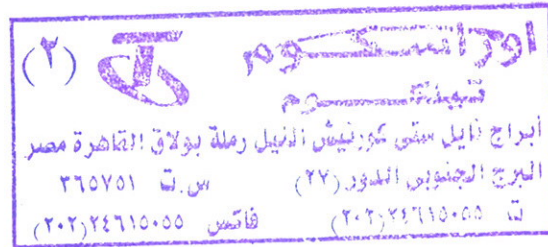 اوراسكوم (٢)
تيليكوم
أبراج نايل سيتى كورنيش النيل رملة بولاق القاهرة مصر
البرج الجنوبى الدور (٢٧) س.ت ٣٦٥٧٥١
ت ٢٤٦١٥٠٥٥(٢٠٢) فاكس ٢٤٦١٥٠٥٥(٢٠٢)